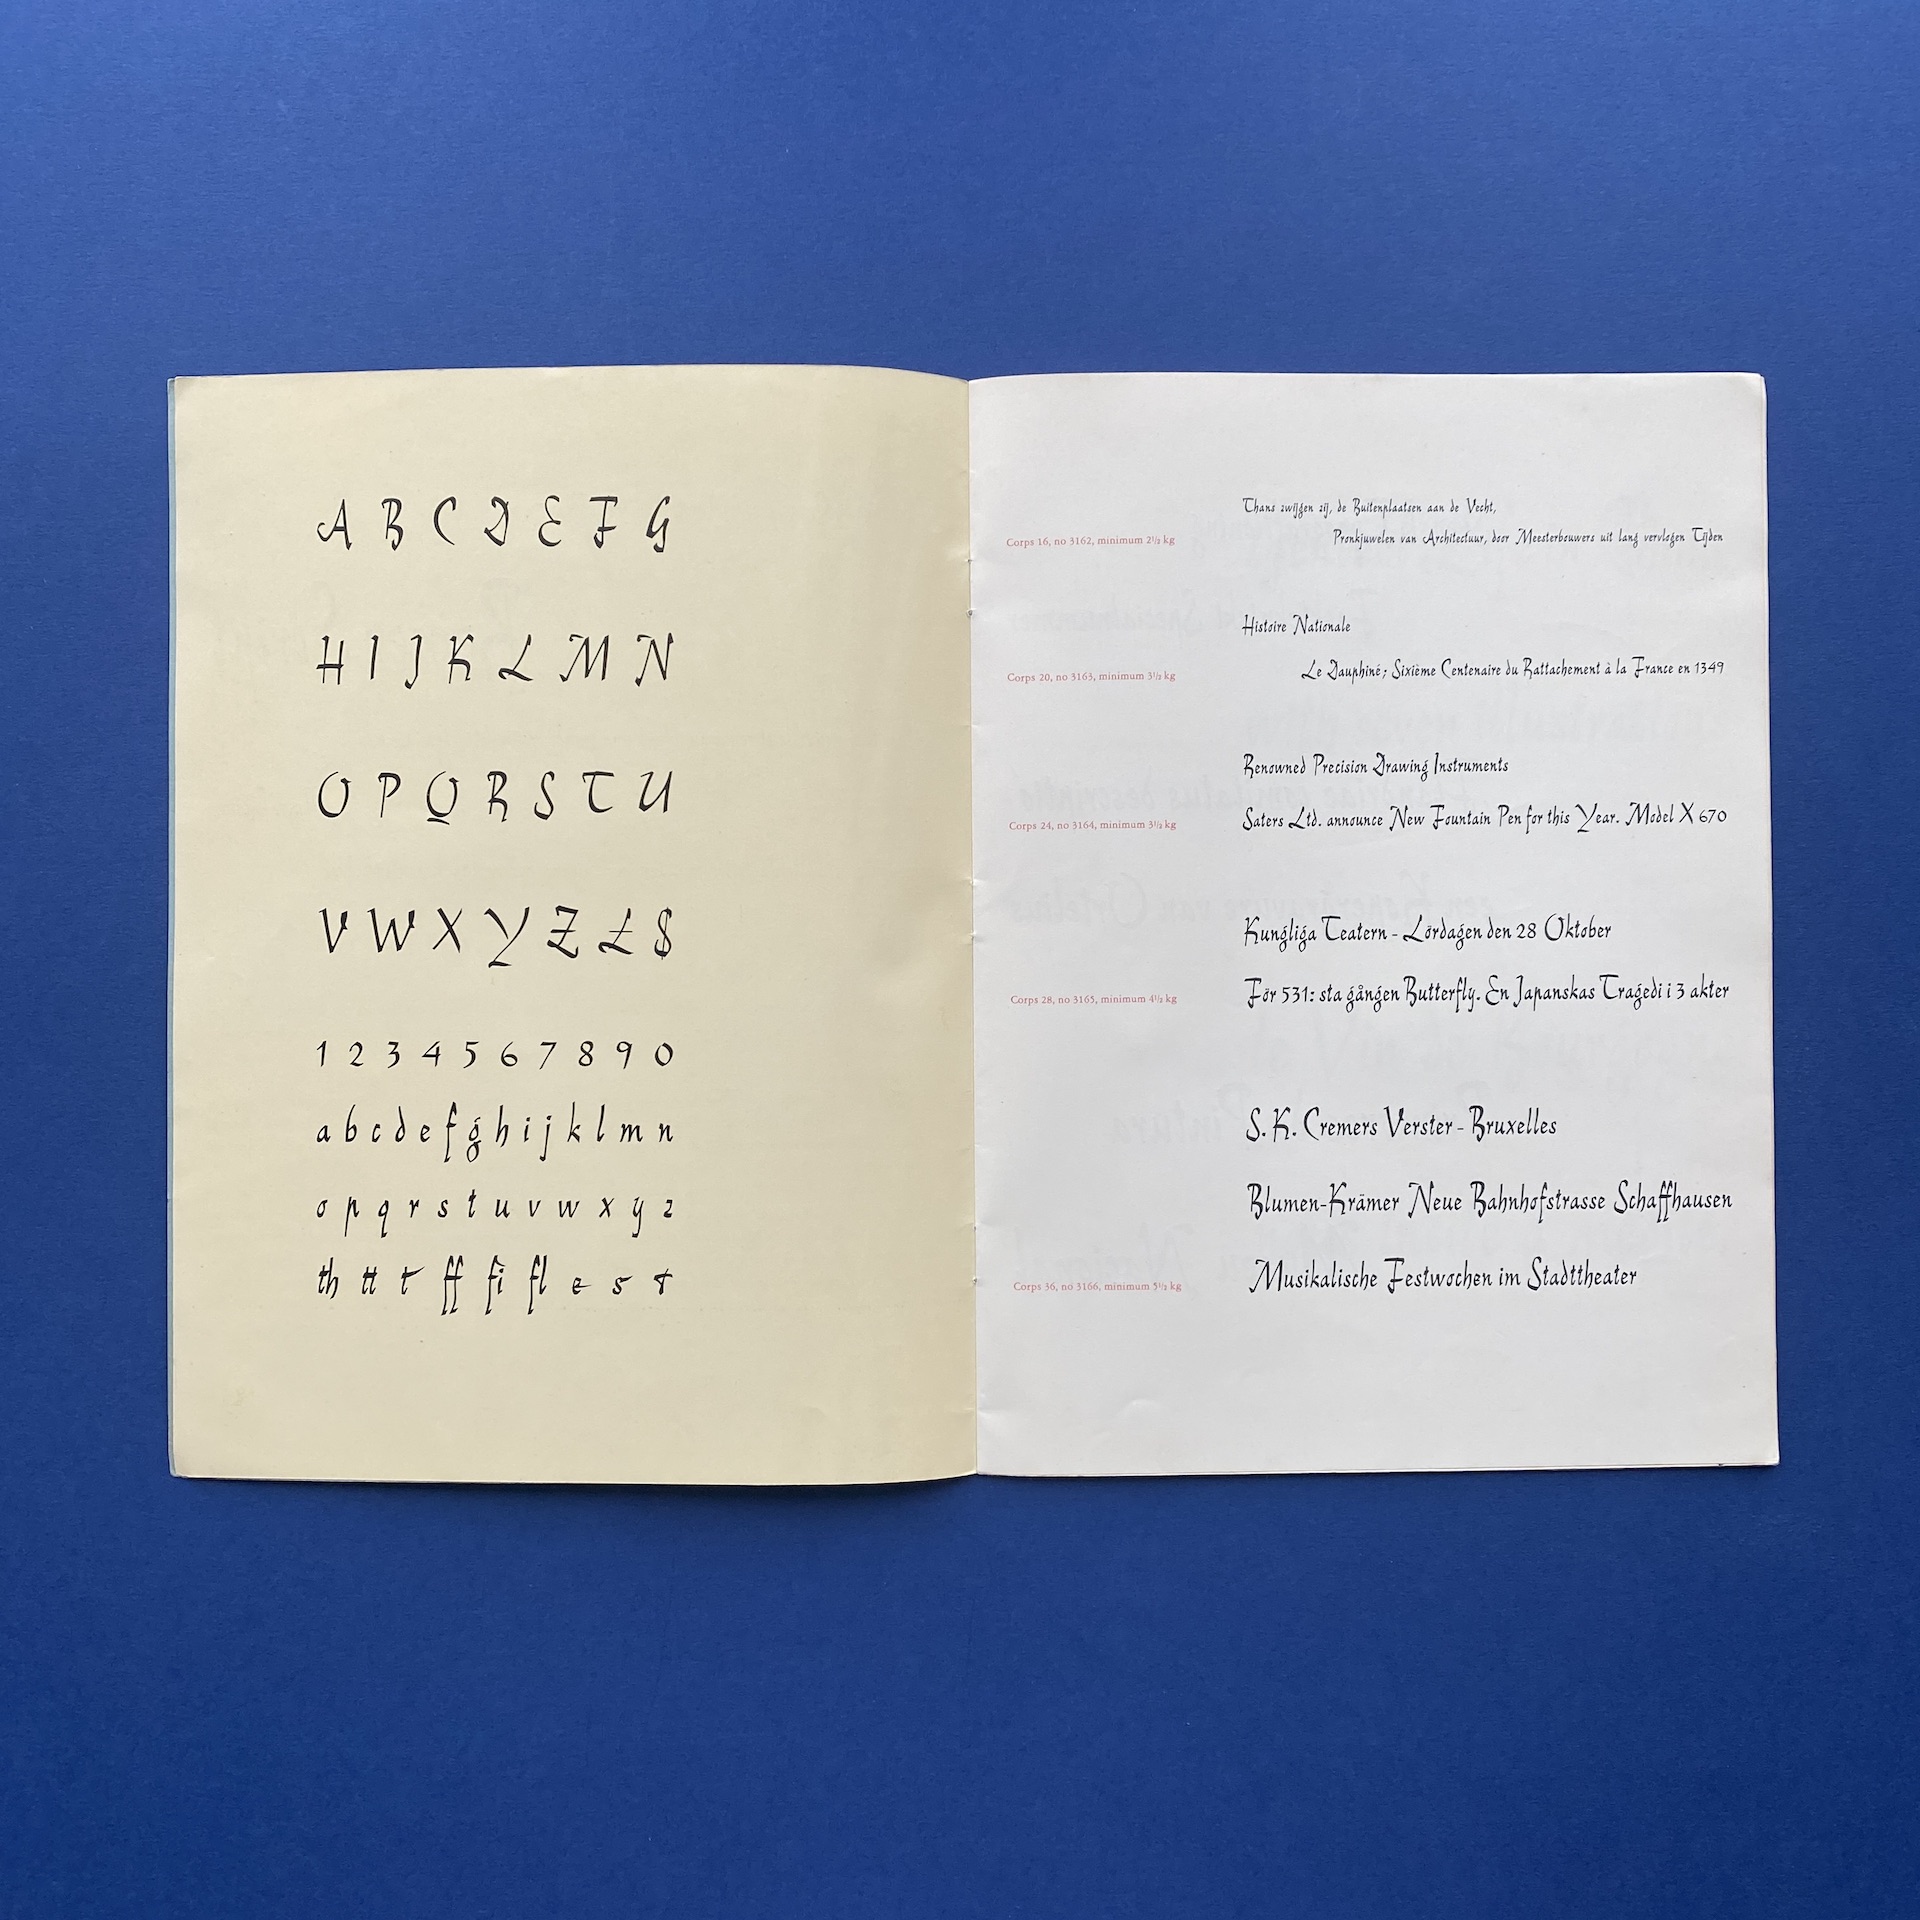 A B C D E F G
H I J K L M N
O P Q R S T U
V W X Y Z £ $
1 2 3 4 5 6 7 8 9 0
a b c d e f g h i j k l m n
o p q r s t u v w x y z
th tt t ff fi fl e s t
Thans zwijgen zij, de Buitenplaatsen aan de Vecht,
Corps 16, no 3162, minimum 2½ kg
Pronkjuwelen van Architectuur, door Meesterbouwers uit lang vervlogen Tijden
Histoire Nationale
Corps 20, no 3163, minimum 3½ kg
Le Dauphiné; Sixième Centenaire du Rattachement à la France en 1349
Renowned Precision Drawing Instruments
Corps 24, no 3164, minimum 3½ kg
Saters Ltd. announce New Fountain Pen for this Year. Model X 670
Kungliga Teatern - Lördagen den 28 Oktober
Corps 28, no 3165, minimum 4½ kg
För 531: sta gången Butterfly. En Japanskas Tragedi i 3 akter
S. K. Cremers Verster - Bruxelles
Blumen-Krämer Neue Bahnhofstrasse Schaffhausen
Corps 36, no 3166, minimum 5½ kg
Musikalische Festwochen im Stadttheater